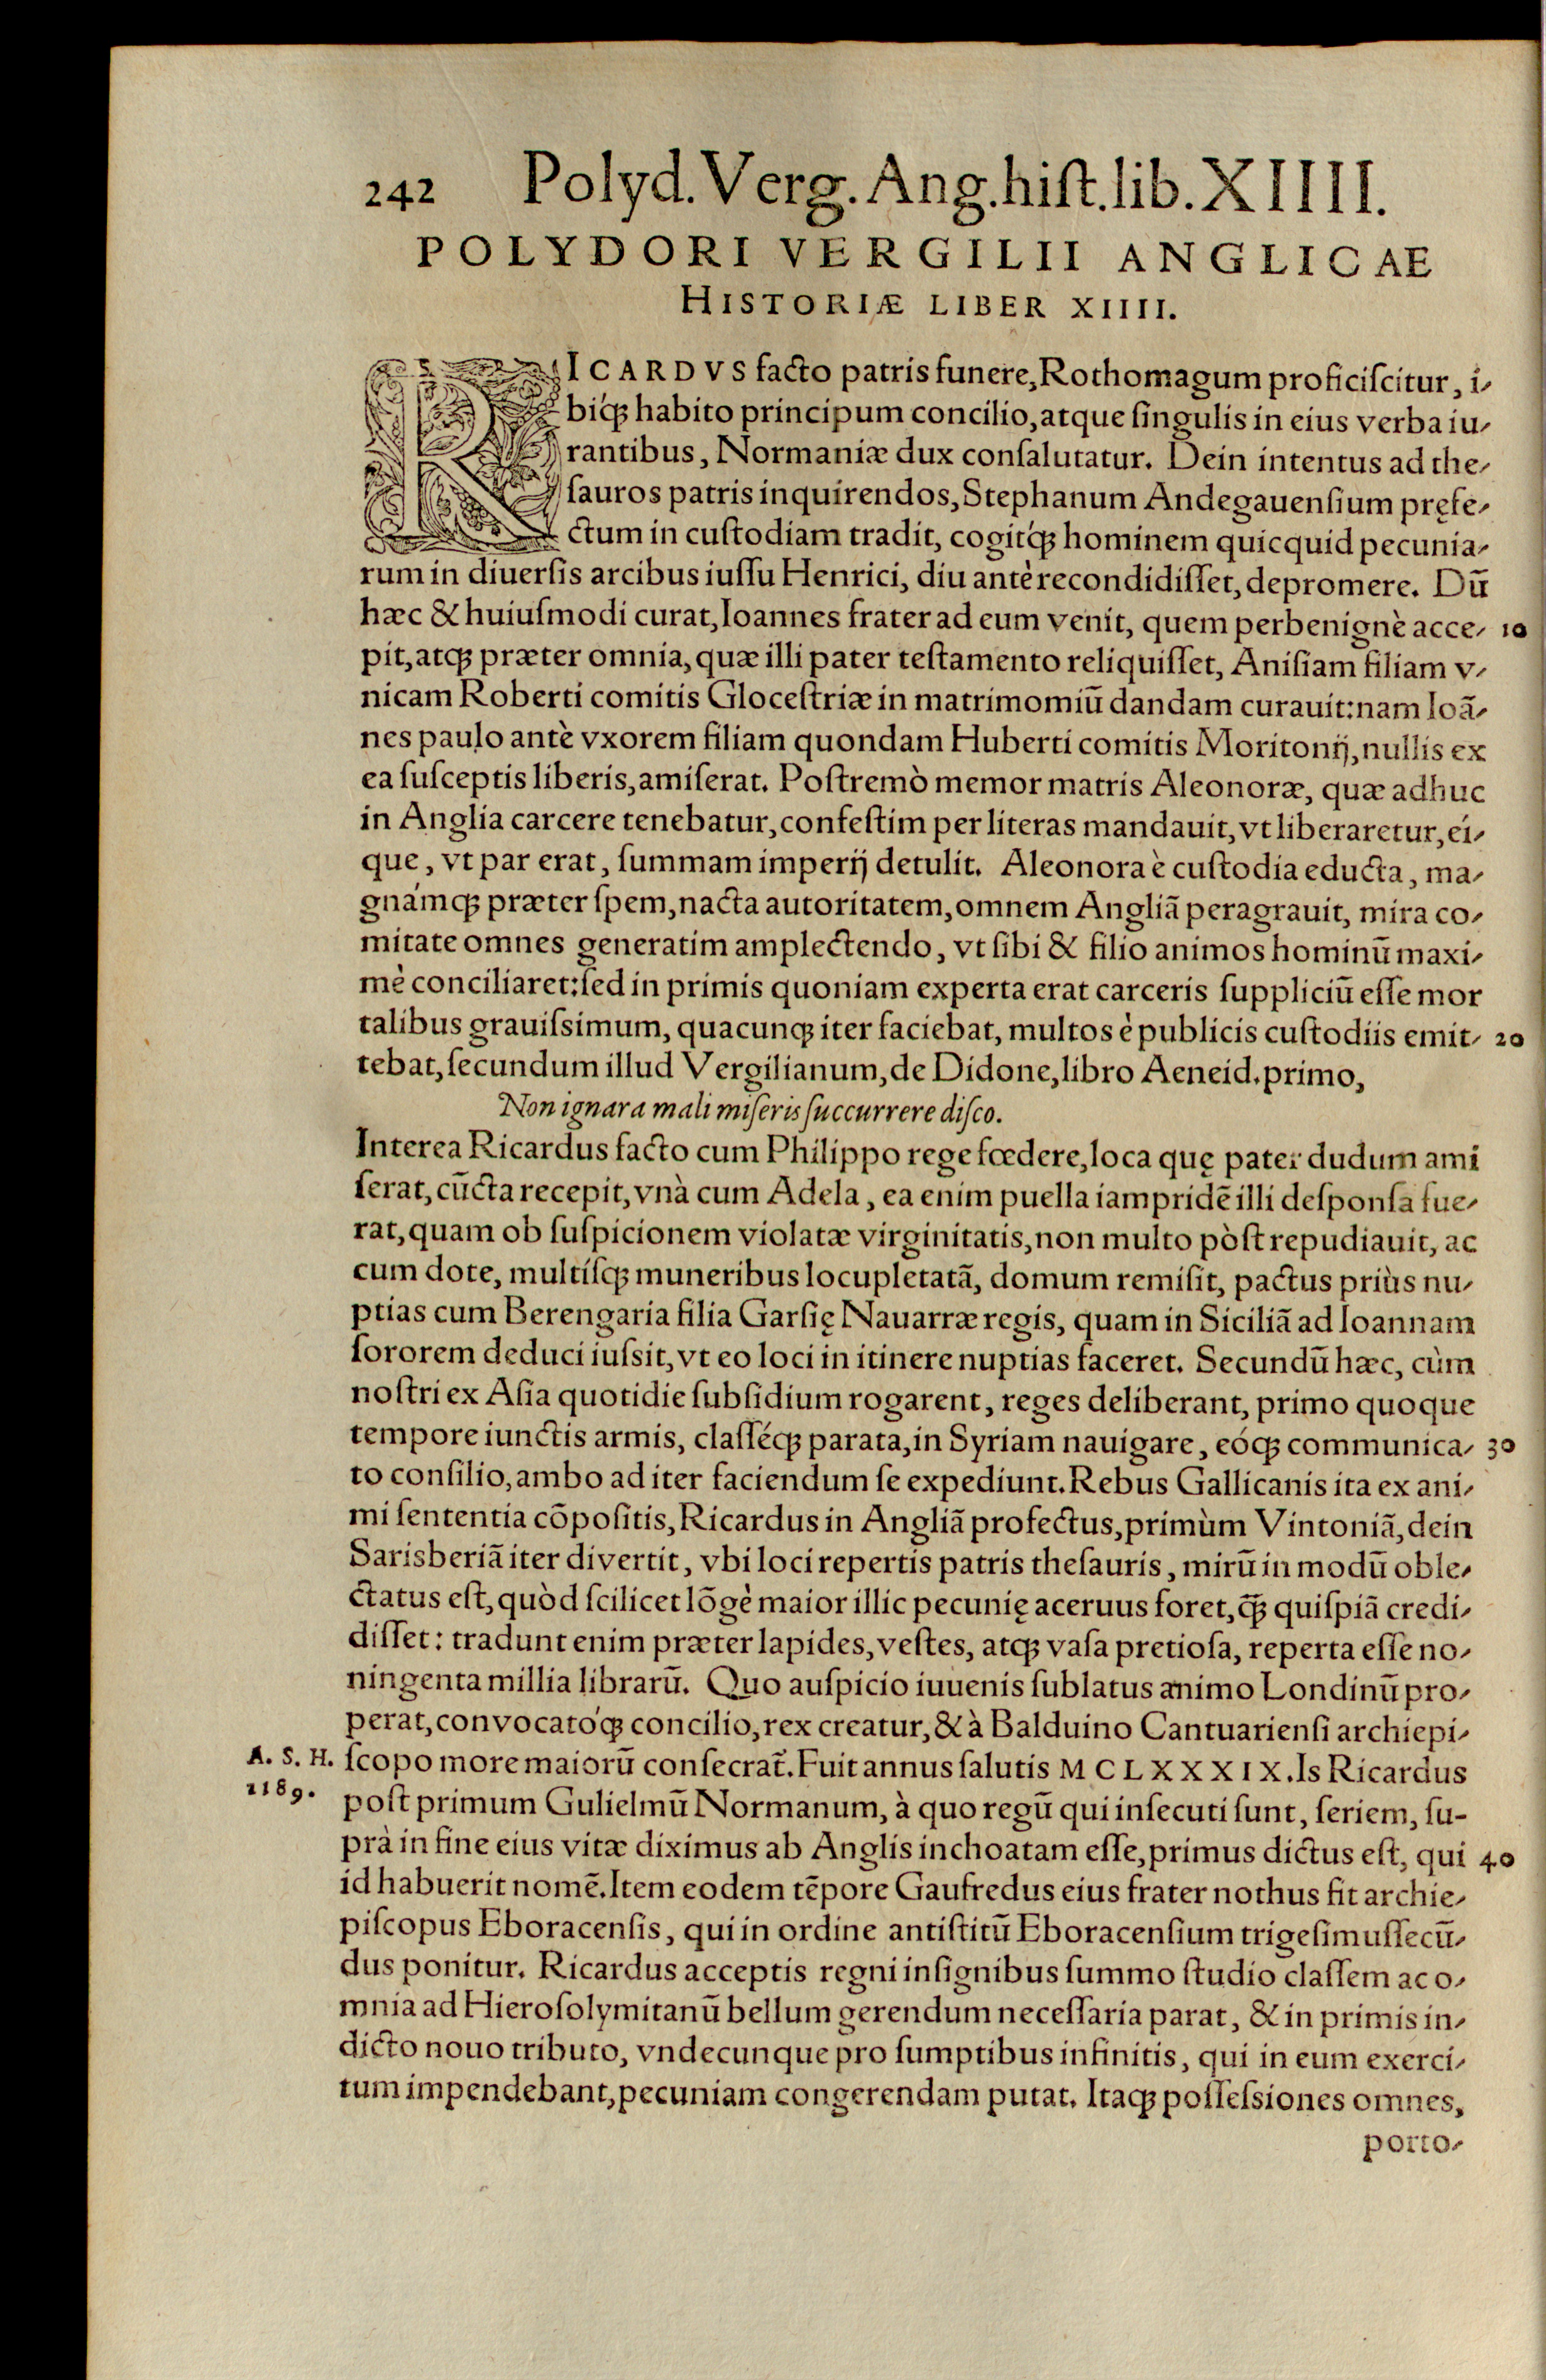 242 Polyd. Verg. Ang. hiſt. lib. XIIII.
POLYDORI VERGILII ANGLICAE
HISTORIÆ LIBER XIIII.
RICARDVS facto patris funere, Rothomagum proficiſcitur, i-
bíq; habito principum concilio, atque ſingulis in eius verba iu-
rantibus, Normaniæ dux conſalutatur. Dein intentus ad the-
ſauros patris inquirendos, Stephanum Andegauenſium pręfe-
ctum in cuſtodiam tradit, cogítq; hominem quicquid pecunia-
rum in diuerſis arcibus iuſſu Henrici, diu antè recondidiſſet, depromere. Dũ
hæc & huiuſmodi curat, Ioannes frater ad eum venit, quem perbenignè acce- 10
pit, atq; præter omnia, quæ illi pater teſtamento reliquiſſet, Aniſiam filiam v-
nicam Roberti comitis Gloceſtriæ in matrimomiũ dandam curauit: nam Ioã-
nes paulo antè vxorem filiam quondam Huberti comitis Moritonij, nullis ex
ea ſuſceptis liberis, amiſerat. Poſtremò memor matris Aleonoræ, quæ adhuc
in Anglia carcere tenebatur, confeſtim per literas mandauit, vt liberaretur, eí-
que, vt par erat, ſummam imperij detulit. Aleonora è cuſtodia educta, ma-
gnámq; præter ſpem, nacta autoritatem, omnem Angliã peragrauit, mira co-
mitate omnes generatim amplectendo, vt ſibi & filio animos hominũ maxi-
mè conciliaret: ſed in primis quoniam experta erat carceris ſuppliciũ eſſe mor
talibus grauiſsimum, quacunq; iter faciebat, multos è publicis cuſtodiis emit- 20
tebat, ſecundum illud Vergilianum, de Didone, libro Aeneid. primo,
Non ignara mali miſeris ſuccurrere diſco.
Interea Ricardus facto cum Philippo rege fœdere, loca quę pater dudum ami
ſerat, cũcta recepit, vnà cum Adela, ea enim puella iampridẽ illi deſponſa fue-
rat, quam ob ſuſpicionem violatæ virginitatis, non multo pòſt repudiauit, ac
cum dote, multíſq; muneribus locupletatã, domum remiſit, pactus priùs nu-
ptias cum Berengaria filia Garſię Nauarræ regis, quam in Siciliã ad Ioannam
ſororem deduci iuſsit, vt eo loci in itinere nuptias faceret. Secundũ hæc, cùm
noſtri ex Aſia quotidie ſubſidium rogarent, reges deliberant, primo quoque
tempore iunctis armis, claſſéq; parata, in Syriam nauigare, eóq; communica- 30
to conſilio, ambo ad iter faciendum ſe expediunt. Rebus Gallicanis ita ex ani-
mi ſententia cõpoſitis, Ricardus in Angliã profectus, primùm Vintoniã, dein
Sarisberiã iter divertit, vbi loci repertis patris theſauris, mirũ in modũ oble-
ctatus eſt, quòd ſcilicet lõgè maior illic pecunię aceruus foret, q̃; quiſpiã credi-
diſſet: tradunt enim præter lapides, veſtes, atq; vaſa pretioſa, reperta eſſe no-
ningenta millia librarũ. Quo auſpicio iuuenis ſublatus animo Londinũ pro-
perat, convocatóq; concilio, rex creatur, & à Balduino Cantuarienſi archiepi-
A. S. H. ſcopo more maiorũ conſecrat̃. Fuit annus ſalutis MCLXXXIX. Is Ricardus
1189. poſt primum Gulielmũ Normanum, à quo regũ qui inſecuti ſunt, ſeriem, ſu-
prà in fine eius vitæ diximus ab Anglis inchoatam eſſe, primus dictus eſt, qui 40
id habuerit nomẽ. Item eodem tẽpore Gaufredus eius frater nothus fit archie-
piſcopus Eboracenſis, qui in ordine antiſtitũ Eboracenſium trigeſimuſſecũ-
dus ponitur. Ricardus acceptis regni inſignibus ſummo ſtudio claſſem ac o-
mnia ad Hieroſolymitanũ bellum gerendum neceſſaria parat, & in primis in-
dicto nouo tributo, vndecunque pro ſumptibus infinitis, qui in eum exerci-
tum impendebant, pecuniam congerendam putat. Itaq; poſſeſsiones omnes,
porto-